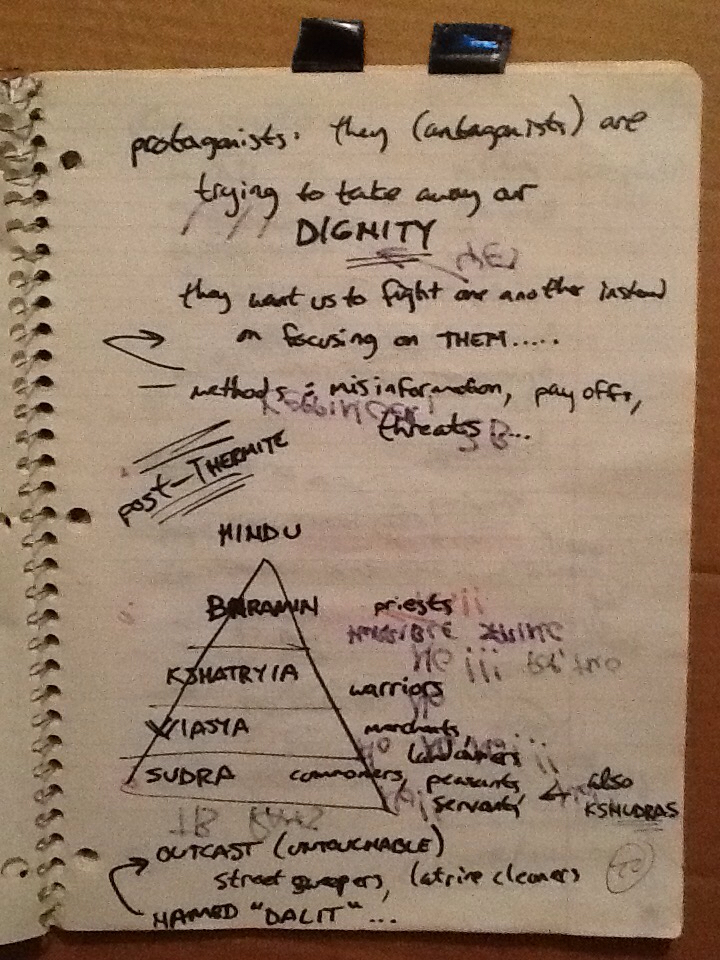 protagonists: they (antagonists) are
trying to take away our
DIGNITY
they want us to fight one another instead
on focusing on THEM.....
— methods: misinformation, pay offs,
threats...
post-THERMITE
HINDU
BHRAMIN priests
KSHATRYIA warriors
VIASYA merchants
landowners
SUDRA commoners, peasants,
servants
also
KSHUDRAS
OUTCAST (UNTOUCHABLE)
street sweepers, latrine cleaners
NAMED "DALIT"...